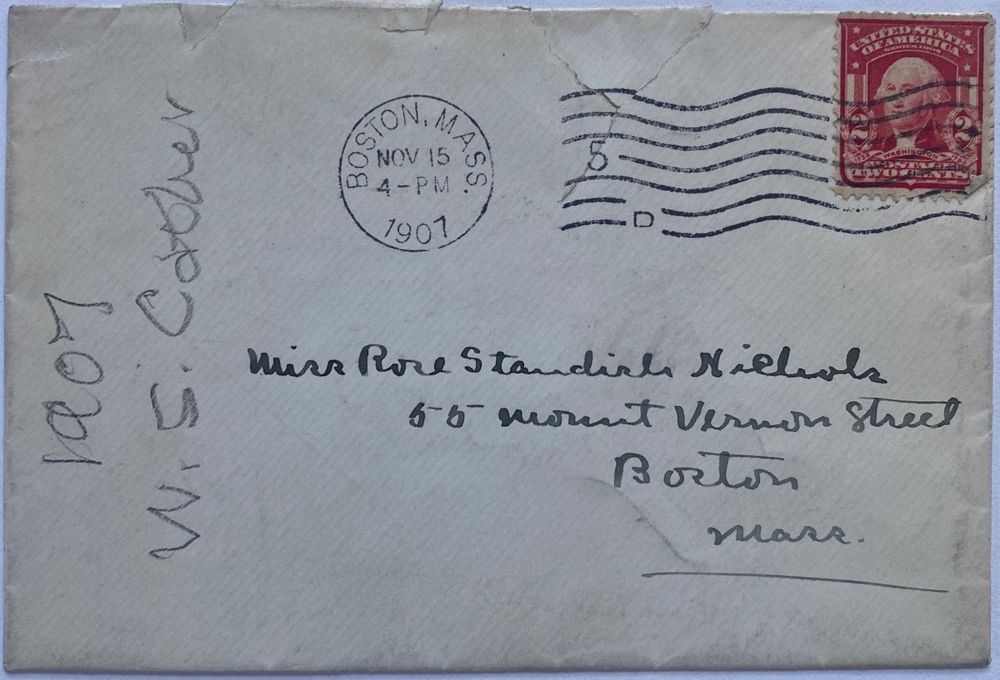 BOSTON, MASS.
NOV 15
4-PM
1907
5
D
UNITED STATES
OF AMERICA
SERIES 1902
2 2
WASHINGTON
TWO CENTS
Miss Rose Standish Nichols
55 Mount Vernon Street
Boston
Mass.
1907
W. S.